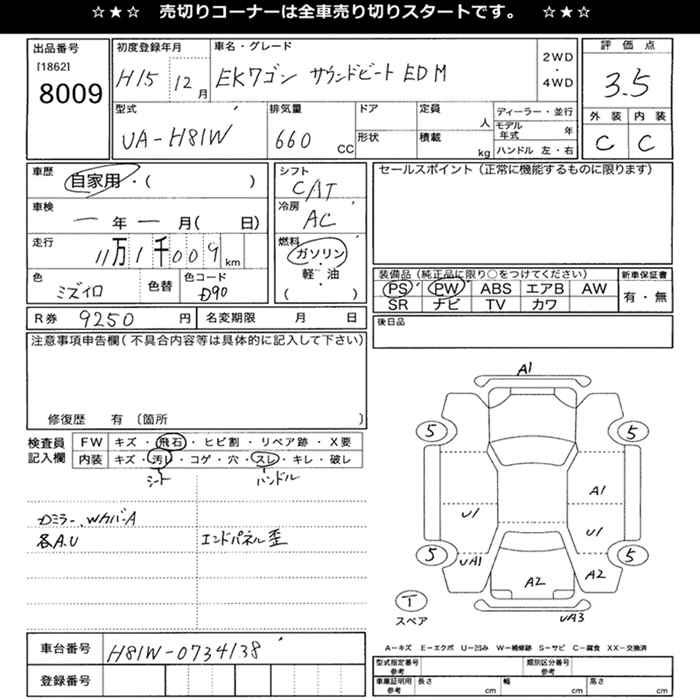 ☆★☆ 売切りコーナーは全車売り切りスタートです。 ☆★☆
出品番号
[1862]
8009
初度登録年月
H15 12月
車名・グレード
EKワゴン サウンドビートEDM
2WD
・
4WD
評価点
3.5
外装 内装
C C
型式
UA-H81W
排気量
660 CC
ドア
形状
定員
人
積載
kg
ディーラー・並行
モデル年式 年
ハンドル 左・右
車歴
自家用・( )
車検
ー年ー月( 日)
走行
11万1千009km
色
ミズイロ
色替
色コード
D90
シフト
CAT
冷房
AC
燃料
ガソリン
・
軽・油
・
( )
セールスポイント(正常に機能するものに限ります)
装備品(純正品に限り○をつけてください)
PS PW ABS エアB AW
SR ナビ TV カワ
新車保証書
有・無
R券 9250円
名変期限 月 日
後日品
注意事項申告欄(不具合内容等は具体的に記入して下さい)
修復歴 有 〔箇所 〕
検査員
記入欄
FW キズ・飛石・ヒビ割・リペア跡・X要
内装 キズ・汚レ・コゲ・穴・スレ・キレ・破レ
シート ハンドル
Dミラー、WカバーA
各A.U エンドパネル歪
車台番号 H81W-0734138
登録番号
A1
5 5
A1
U1 U1
5 5
UA1 A2 A2
UA3
T
スペア
A-キズ E-エクボ U-凹み W-補修跡 S-サビ C-腐食 XX-交換済
型式指定番号
参考
類別区分番号
参考
車庫証明用
参考
長さ cm 幅 cm 高さ cm